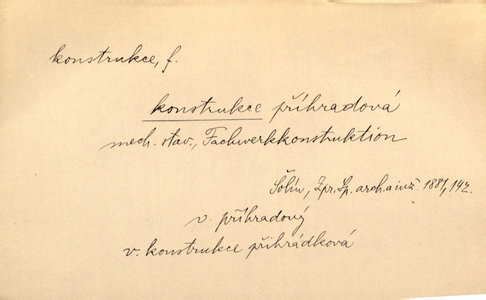 konstrukce, f.
konstrukce příhradová
mech. stav., Fachwerkkonstruktion
Šolín, Zpr. Sp. arch. a inž. 1881, 142.
v. příhradový
v. konstrukce přihrádková